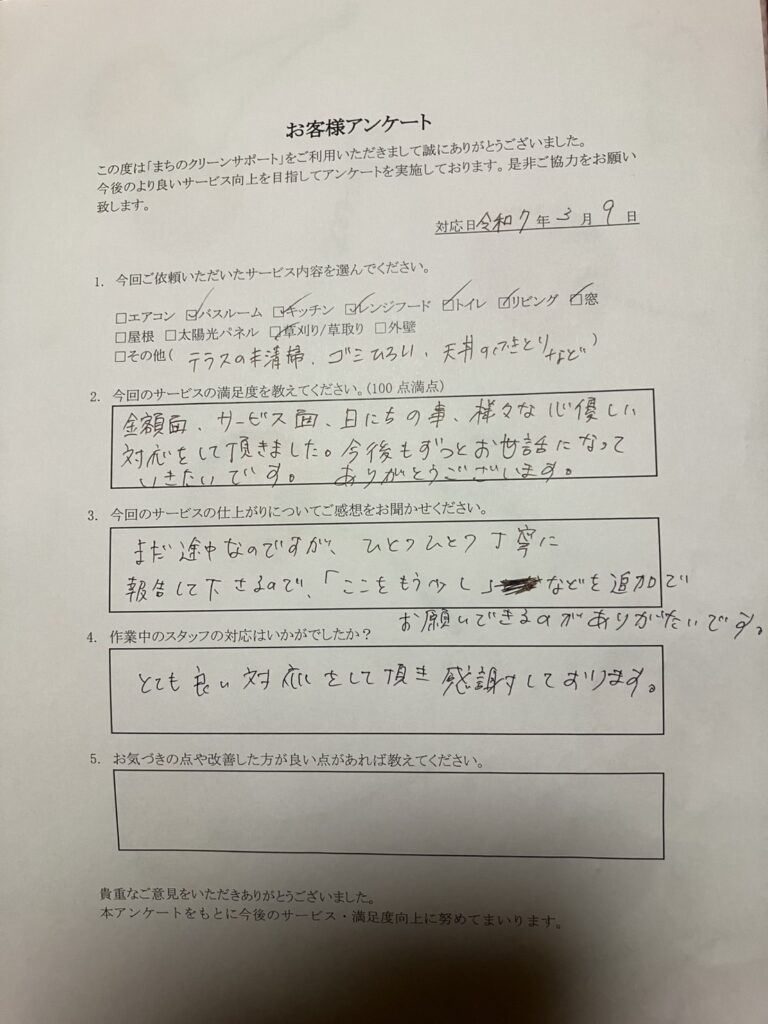 お客様アンケート
この度は「まちのクリーンサポート」をご利用いただきまして誠にありがとうございました。
今後のより良いサービス向上を目指してアンケートを実施しております。是非ご協力をお願い
致します。
対応日 令和 7 年 3 月 9 日
1. 今回ご依頼いただいたサービス内容を選んでください。
□エアコン ☑バスルーム ☑キッチン ☑レンジフード ☑トイレ ☑リビング ☑窓
□屋根 □太陽光パネル ☑草刈り/草取り □外壁
□その他( テラスの 清掃、ゴミひろい、天井のふきとりなど )
2. 今回のサービスの満足度を教えてください。(100 点満点)
金額面、サービス面、日にちの事、様々な心優しい
対応をして頂きました。今後もずっとお世話になって
いきたいです。 ありがとうございます。
3. 今回のサービスの仕上がりについてご感想をお聞かせください。
まだ途中なのですが、ひとつひとつ丁寧に
報告して下さるので、「ここをもう少し などを追加で
お願いできるのがありがたいです。
4. 作業中のスタッフの対応はいかがでしたか？
とても良い対応をして頂き感謝しております。
5. お気づきの点や改善した方が良い点があれば教えてください。
貴重なご意見をいただきありがとうございました。
本アンケートをもとに今後のサービス・満足度向上に努めてまいります。